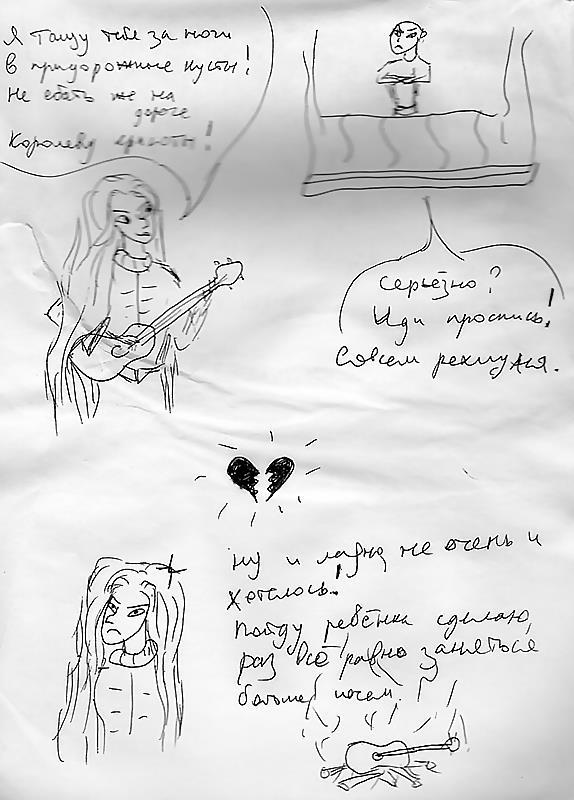 Я тащу тебе за ноги
в придорожные кусты!
Не ебать же на
дороге
Королеву красоты!
Серьёзно?
Иди проспись!
Совсем рехнулся.
Ну и ладно не очень и
хотелось!
Пойду ребёнка сделаю,
раз всё равно заняться
больше нечем.